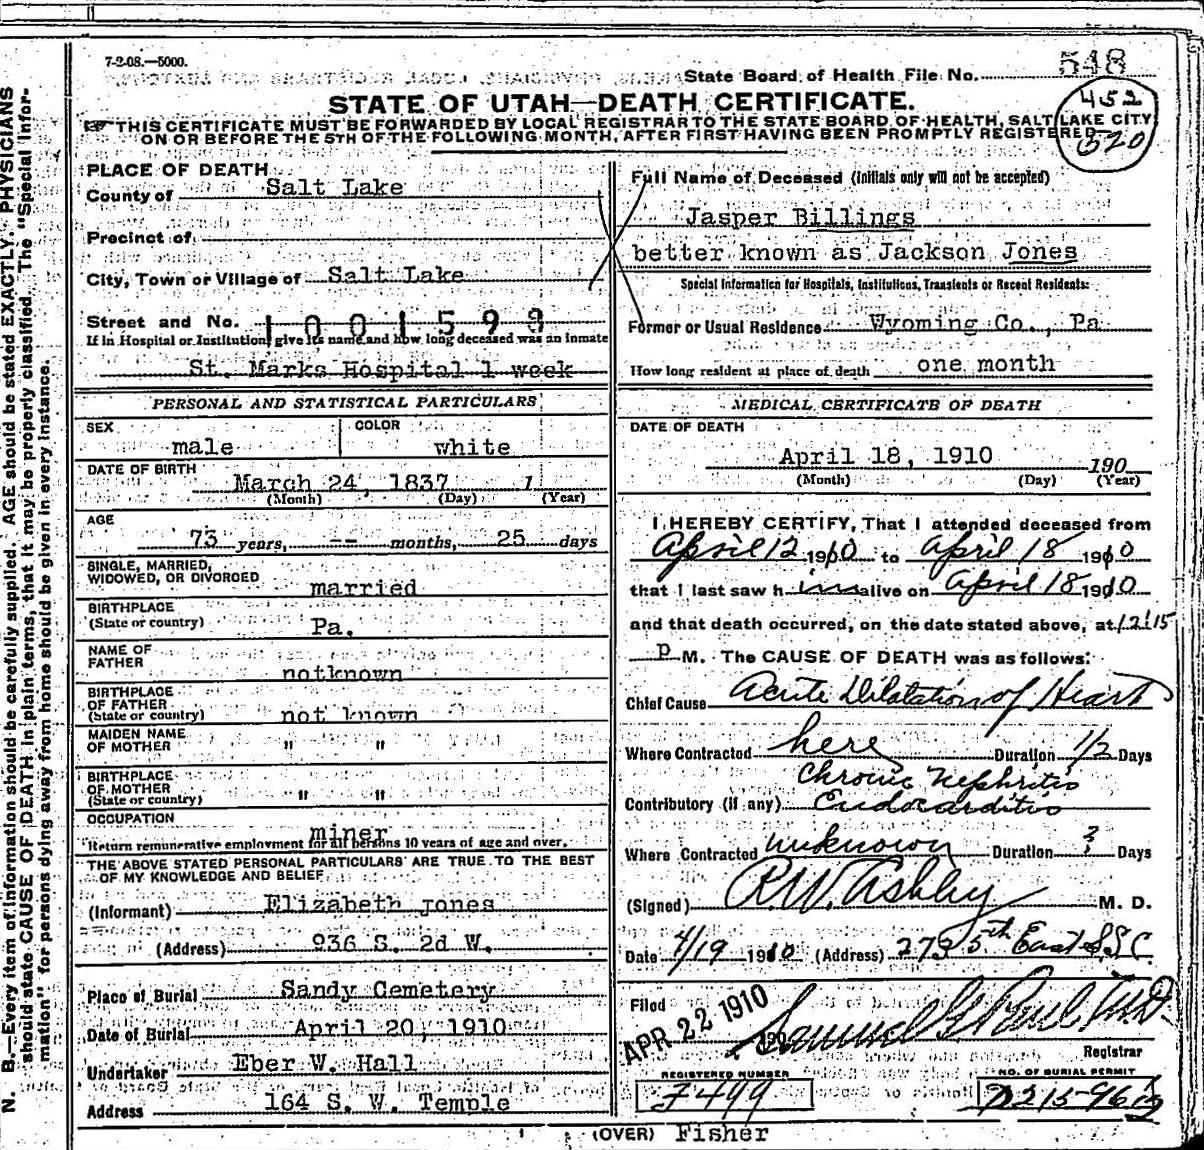 7-2-08.—5000.
State Board of Health File No. 548
STATE OF UTAH—DEATH CERTIFICATE.
452
THIS CERTIFICATE MUST BE FORWARDED BY LOCAL REGISTRAR TO THE STATE BOARD OF HEALTH, SALT LAKE CITY
ON OR BEFORE THE 5TH OF THE FOLLOWING MONTH, AFTER FIRST HAVING BEEN PROMPTLY REGISTERED
520
PLACE OF DEATH
County of Salt Lake
Precinct of
City, Town or Village of Salt Lake
Street and No. 1001593
If in Hospital or Institution, give its name and how long deceased was an inmate
St. Marks Hospital 1 week
PERSONAL AND STATISTICAL PARTICULARS
SEX COLOR
male white
DATE OF BIRTH
March 24, 1837 1
(Month) (Day) (Year)
AGE
73 years, -- months, 25 days
SINGLE, MARRIED,
WIDOWED, OR DIVORCED
married
BIRTHPLACE
(State or country) Pa.
NAME OF
FATHER
notknown
BIRTHPLACE
OF FATHER
(State or country) not known
MAIDEN NAME
OF MOTHER " "
BIRTHPLACE
OF MOTHER
(State or country) " "
OCCUPATION
miner
Return remunerative employment for all persons 10 years of age and over.
THE ABOVE STATED PERSONAL PARTICULARS ARE TRUE TO THE BEST
OF MY KNOWLEDGE AND BELIEF
(Informant) Elizabeth Jones
(Address) 936 S. 2d W.
Place of Burial Sandy Cemetery
Date of Burial April 20, 1910
Undertaker Eber W. Hall
Address 164 S. W. Temple
Full Name of Deceased (Initials only will not be accepted)
Jasper Billings
better known as Jackson Jones
Special Information for Hospitals, Institutions, Transients or Recent Residents:
Former or Usual Residence Wyoming Co., Pa
How long resident at place of death one month
MEDICAL CERTIFICATE OF DEATH
DATE OF DEATH
April 18, 1910 190
(Month) (Day) (Year)
I HEREBY CERTIFY, That I attended deceased from
April 12 1910 to April 18 1910
that I last saw him alive on April 18 1910
and that death occurred, on the date stated above, at 12:15
P M. The CAUSE OF DEATH was as follows:
Chief Cause Acute Dilatation of Heart
Where Contracted here Duration 1/2 Days
Chronic Nephritis
Contributory (if any) Endocarditis
Where Contracted unknown Duration ? Days
(Signed) R.W. Ashby M. D.
Date 4/19 1910 (Address) 273 5th East S.L.C.
Filed APR 22 1910 190 Samuel G. Paul M.D.
Registrar
REGISTERED NUMBER
F499
NO. OF BURIAL PERMIT
(OVER) Fisher
N. B.—Every item of information should be carefully supplied. AGE should be stated EXACTLY. PHYSICIANS
should state CAUSE OF DEATH in plain terms, that it may be properly classified. The "Special Infor-
mation" for persons dying away from home should be given in every instance.